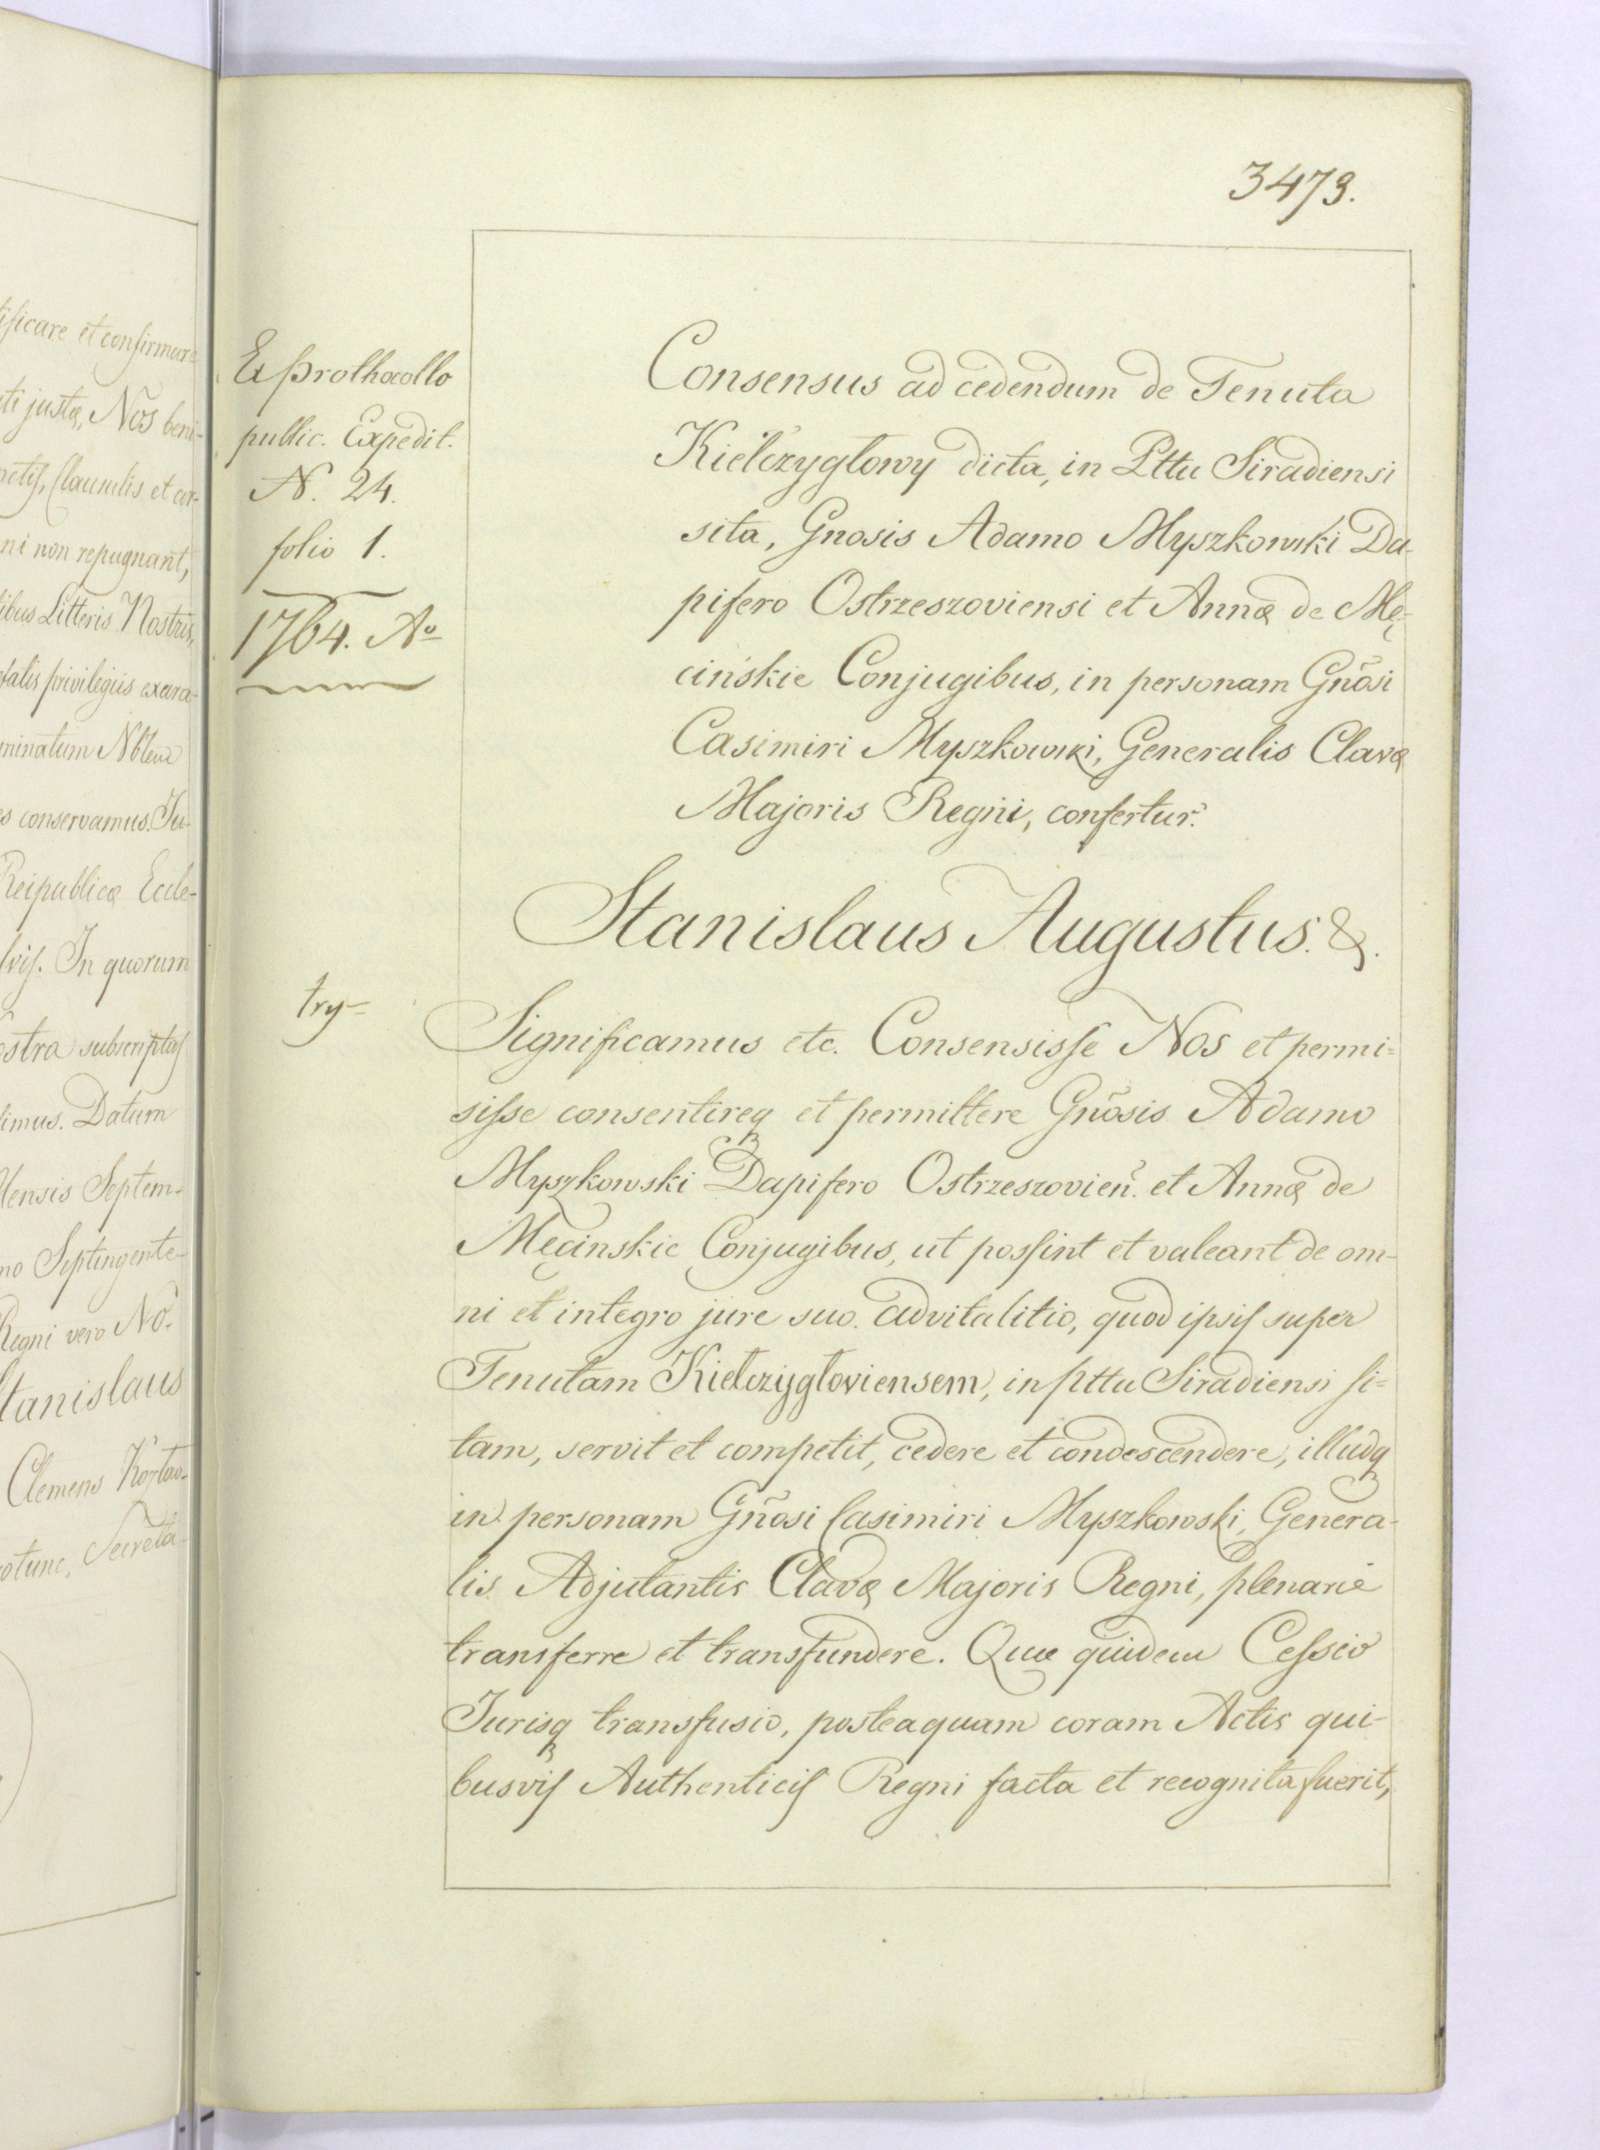 3473.
Ex Prothocollo
public. Expedit.
N. 24.
folio 1.
1764. Aº
Consensus ad cedendum de Tenuta
Kiełczygłowy dicta, in Pttu Siradiensi
sita, Gnosis Adamo Myszkowski Da-
pifero Ostrzeszoviensi et Annæ de Mę-
cińskie Conjugibus, in personam Gnõsi
Casimiri Myszkowski, Generalis Clavæ
Majoris Regni, confertur.
Stanislaus Augustus. &.
try=
Significamus etc. Consensisse Nos et permi=
sisse consentireq et permittere Gnõsis Adamo
Myszkowski Dapifero Ostrzeszovien. et Annæ de
Męcinskie Conjugibus, ut possint et valeant de om-
ni et integro jure suo advitalitio, quod ipsis super
Tenutam Kiełczygłoviensem, in pttu Siradiensi si=
tam, servit et competit, cedere et condescendere, illudq
in personam Gnõsi Casimiri Myszkowski, Genera-
lis Adjutantis Clavæ Majoris Regni, plenarie
transferre et transfundere. Quæ quidem Cessio
Jurisq transfusio, posteaquam coram Actis qui-
busvis Authenticis Regni facta et recognita fuerit,
ificare et confirmare
ti justæ, Nos beni-
Clausulis et
ni non repugnant,
ibus Litteris Nostris,
talis privilegiis exara-
minatum Nblem
s conservamus. Ju-
Reipublicæ Eccle-
vis. In quorum
ostra subscriptas
imus. Datum
lensis Septem-
no Septingente-
Regni vero No.
Stanislaus
Clemens
otunc, Secreta-